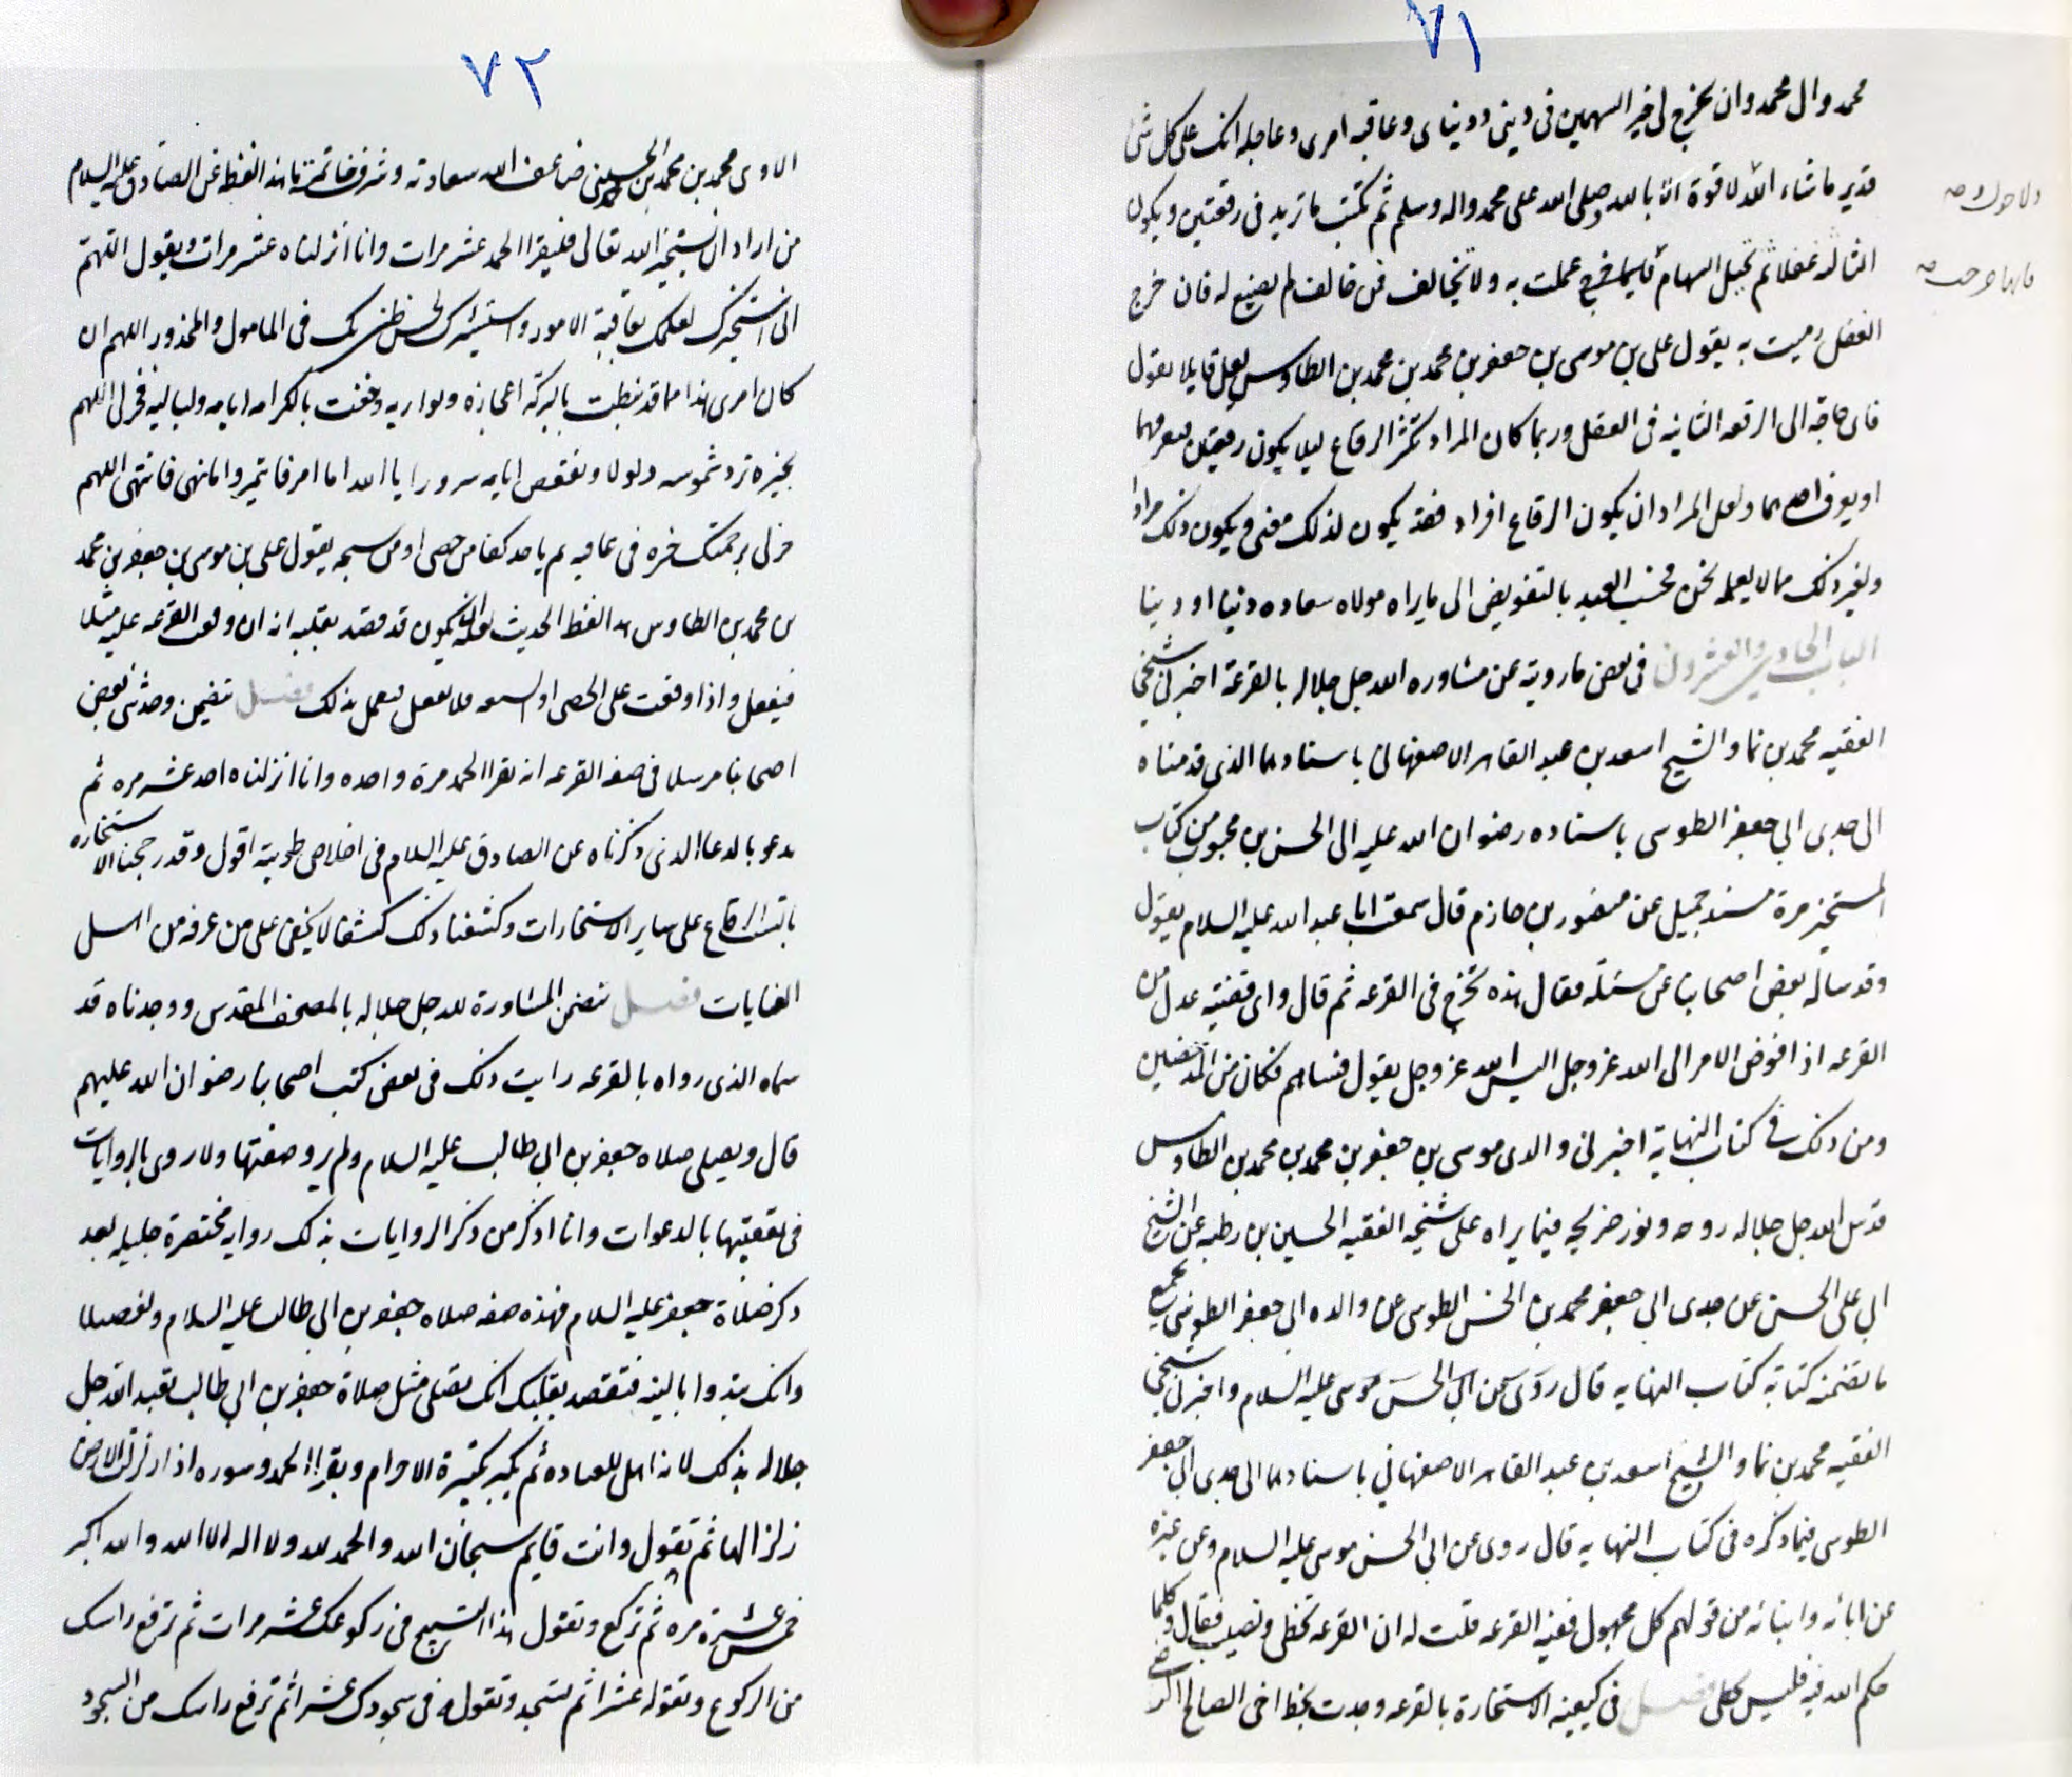 ٧١
محمد وال محمد وان تخرج لي خير السهمين في ديني ودنياي وعاقبه امري وعاجله انك على كل شئ
قدير ما شاء الله لا قوة الا بالله وصلى الله على محمد واله وسلم ثم تكتب ما تريد في رقعتين ويكون
ولا حول وصه
الثالث غفلا ثم تجيل السهام فايما خرج عملت به ولا تخالف فمن خالف لم يصنع له فان خرج
فايها خرجت صه
الغفل رميت به يقول علي بن موسى بن جعفر بن محمد بن محمد الطاوس لعل قايلا يقول
فاى حاجة الى الرقعه الثانيه في الغفل وربما كان المراد تكثر الرقاع ليلا يكون رقعتين فيعرفهما
او يعرف احدهما ولعل المراد ان يكون الرقاع افراد فقد يكون لذلك معنى ويكون ذلك مرادا
ولغير ذلك مما لا يعلمه نحن فحسب العبد بالتفويض الى ما يراه مولاه سعاده دنيا او دينا
الباب الحادي والعشرون في بعض ما رويته عن مشاوره الله جل جلاله بالقرعة اخبرني شيخي
الفقيه محمد بن نما والشيخ اسعد بن عبد القاهر الاصفهاني باسنادهما الذي قدمناه
الى جدي ابي جعفر الطوسي باسناده رضوان الله عليه الى الحسن بن محبوب من كتاب
المشيخة من مسند جميل عن منصور بن حازم قال سمعت ابا عبد الله عليه السلام يقول
وقد ساله بعض اصحابنا عن مسئلة فقال هذه تخرج في القرعه ثم قال واى قضية عدل من
القرعه اذا فوض الامر الى الله عز وجل اليس الله عز وجل يقول فساهم فكان من المدحضين
ومن ذلك في كتاب النهاية اخبرني والدي موسى بن جعفر بن محمد بن محمد بن الطاوس
قدس الله جل جلاله روحه ونور ضريحه فيما يراه على شيخه الفقيه الحسين بن رطبه عن الشيخ
ابي علي الحسن عن جدي ابي جعفر محمد بن الحسن الطوسي عن والده ابي جعفر الطوسي بجميع
ما تضمنه كتابه كتاب النهايه قال روى عن ابي الحسن موسى عليه السلام واخبرني شيخي
الفقيه محمد بن نما والشيخ اسعد بن عبد القاهر الاصفهاني باسنادهما الى جدي ابي جعفر
الطوسي فيما ذكره في كتاب النهايه قال روى عن ابي الحسن موسى عليه السلام وعن غيره
عن ابائه وابنائه من قولهم كل مجهول ففيه القرعه قلت له ان القرعه تخطى وتصيب فقال وكلما
حكم الله فيه فليس مخطى فصل في كيفيه الاستخارة بالقرعه وجدت بخط اخي الصالح الرضي
٧٢
الاوي محمد بن محمد بن محمد الحسيني ضاعف الله سعادته وشرف خاتمته ما هذا لفظه عن الصادق عليه السلام
من اراد ان يستخير الله تعالى فليقرا الحمد عشر مرات وانا أنزلناه عشر مرات ويقول اللهم
اني استخيرك لعلمك بعاقبة الامور واستشيرك لحسن ظني بك في المامول والمحذور اللهم ان
كان امري هذا مما قد نيطت بالبركه اعجازه وبواديه وحفت بالكرامه ايامه ولياليه فخر لي اللهم
بخيره ترد شموسه ذلولا وتقعص ايامه سرورا يا الله اما امر فاتمر واما نهي فانتهي اللهم
خر لي برحمتك خيره في عافيه ثم ياخذ كفا من حصى او من سبحه يقول علي بن موسى بن جعفر بن محمد
بن محمد بن الطاوس هذا لفظ الحديث لعله ان يكون قد قصد بقلبه انه ان وقعت القرعه عليه مثلا
فيفعل واذا وقعت على الحصى او السبحه فلا يفعل فيعمل بذلك فصل يتضمن وحدثني بعض
اصحابنا مرسلا في صفه القرعه انه يقرا الحمد مرة واحده وانا انزلناه احد عشر مره ثم
يدعو بالدعا الذي ذكرناه عن الصادق عليه السلام في اخلاص طويته اقول وقد رجحنا الاستخاره
بالست الرقاع على ساير الاستخارات وكشفنا ذلك كشفا لا يخفى على من عرفه من اهل
العنايات فصل يتضمن المشاورة لله جل جلاله بالمصحف المقدس ووجدناه قد
سماه الذي رواه بالقرعه رايت ذلك في بعض كتب اصحابنا رضوان الله عليهم
قال ويصلي صلاه جعفر بن ابي طالب عليه السلام ولم يرو صفتها ولا روى بالروايات
في تعقيبها بالدعوات وانا اذكر من ذكر الروايات بذلك روايه مختصرة جليله بعد
ذكر صلاة جعفر عليه السلام فهذه صفه صلاه جعفر بن ابي طالب عليه السلام وتفصيلها
وانك تبدوا بالنيه فتقصد بقلبك انك تصلي مثل صلاة جعفر بن ابي طالب تعبد الله جل
جلاله بذلك لانه اهل للعباده ثم تكبر تكبيرة الاحرام وتقرا الحمد وسوره اذا زلزلت الارض
زلزالها ثم تقول وانت قايم سبحان الله والحمد لله ولا اله الا الله والله اكبر
خمس عشرة مره ثم تركع وتقول هذا التسبيح في ركوعك عشر مرات ثم ترفع راسك
من الركوع وتقوله عشرا ثم تسجد وتقوله في سجودك عشرا ثم ترفع راسك من السجود